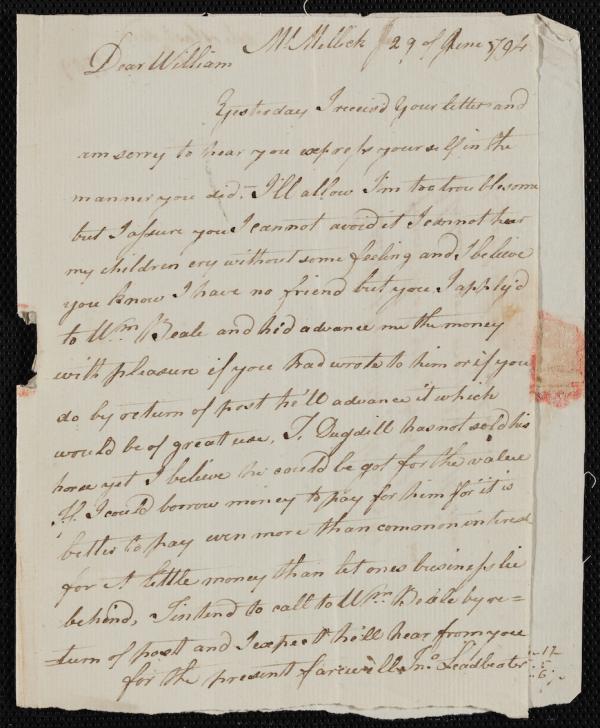 Mt. Mellick 29 of June 1794
Dear William
Yesterday I receiv'd Your letter and
am sorry to hear you express yourself in the
manner you did - I'll allow I'm too troublesome
but I assure you I cannot avoid it I cannot hear
my children cry without some feeling and I believe
you know I have no friend but you I apply'd
to Wm. Beale and he'd advance me the money
with pleasure if you had wrote to him or if you
do by return of post he'll advance it which
would be of great use, T. Dugdill has not sold his
horse yet I believe he could be got for the value
If I could borrow money to pay for him for it is
better to pay even more than common interest
for A little money than let ones business lie
behind, I intend to call to Wm. Beale by re=
=turn of post and I expect he'll hear from you
for the present farewill Jno. Leadbeater
17
5
6